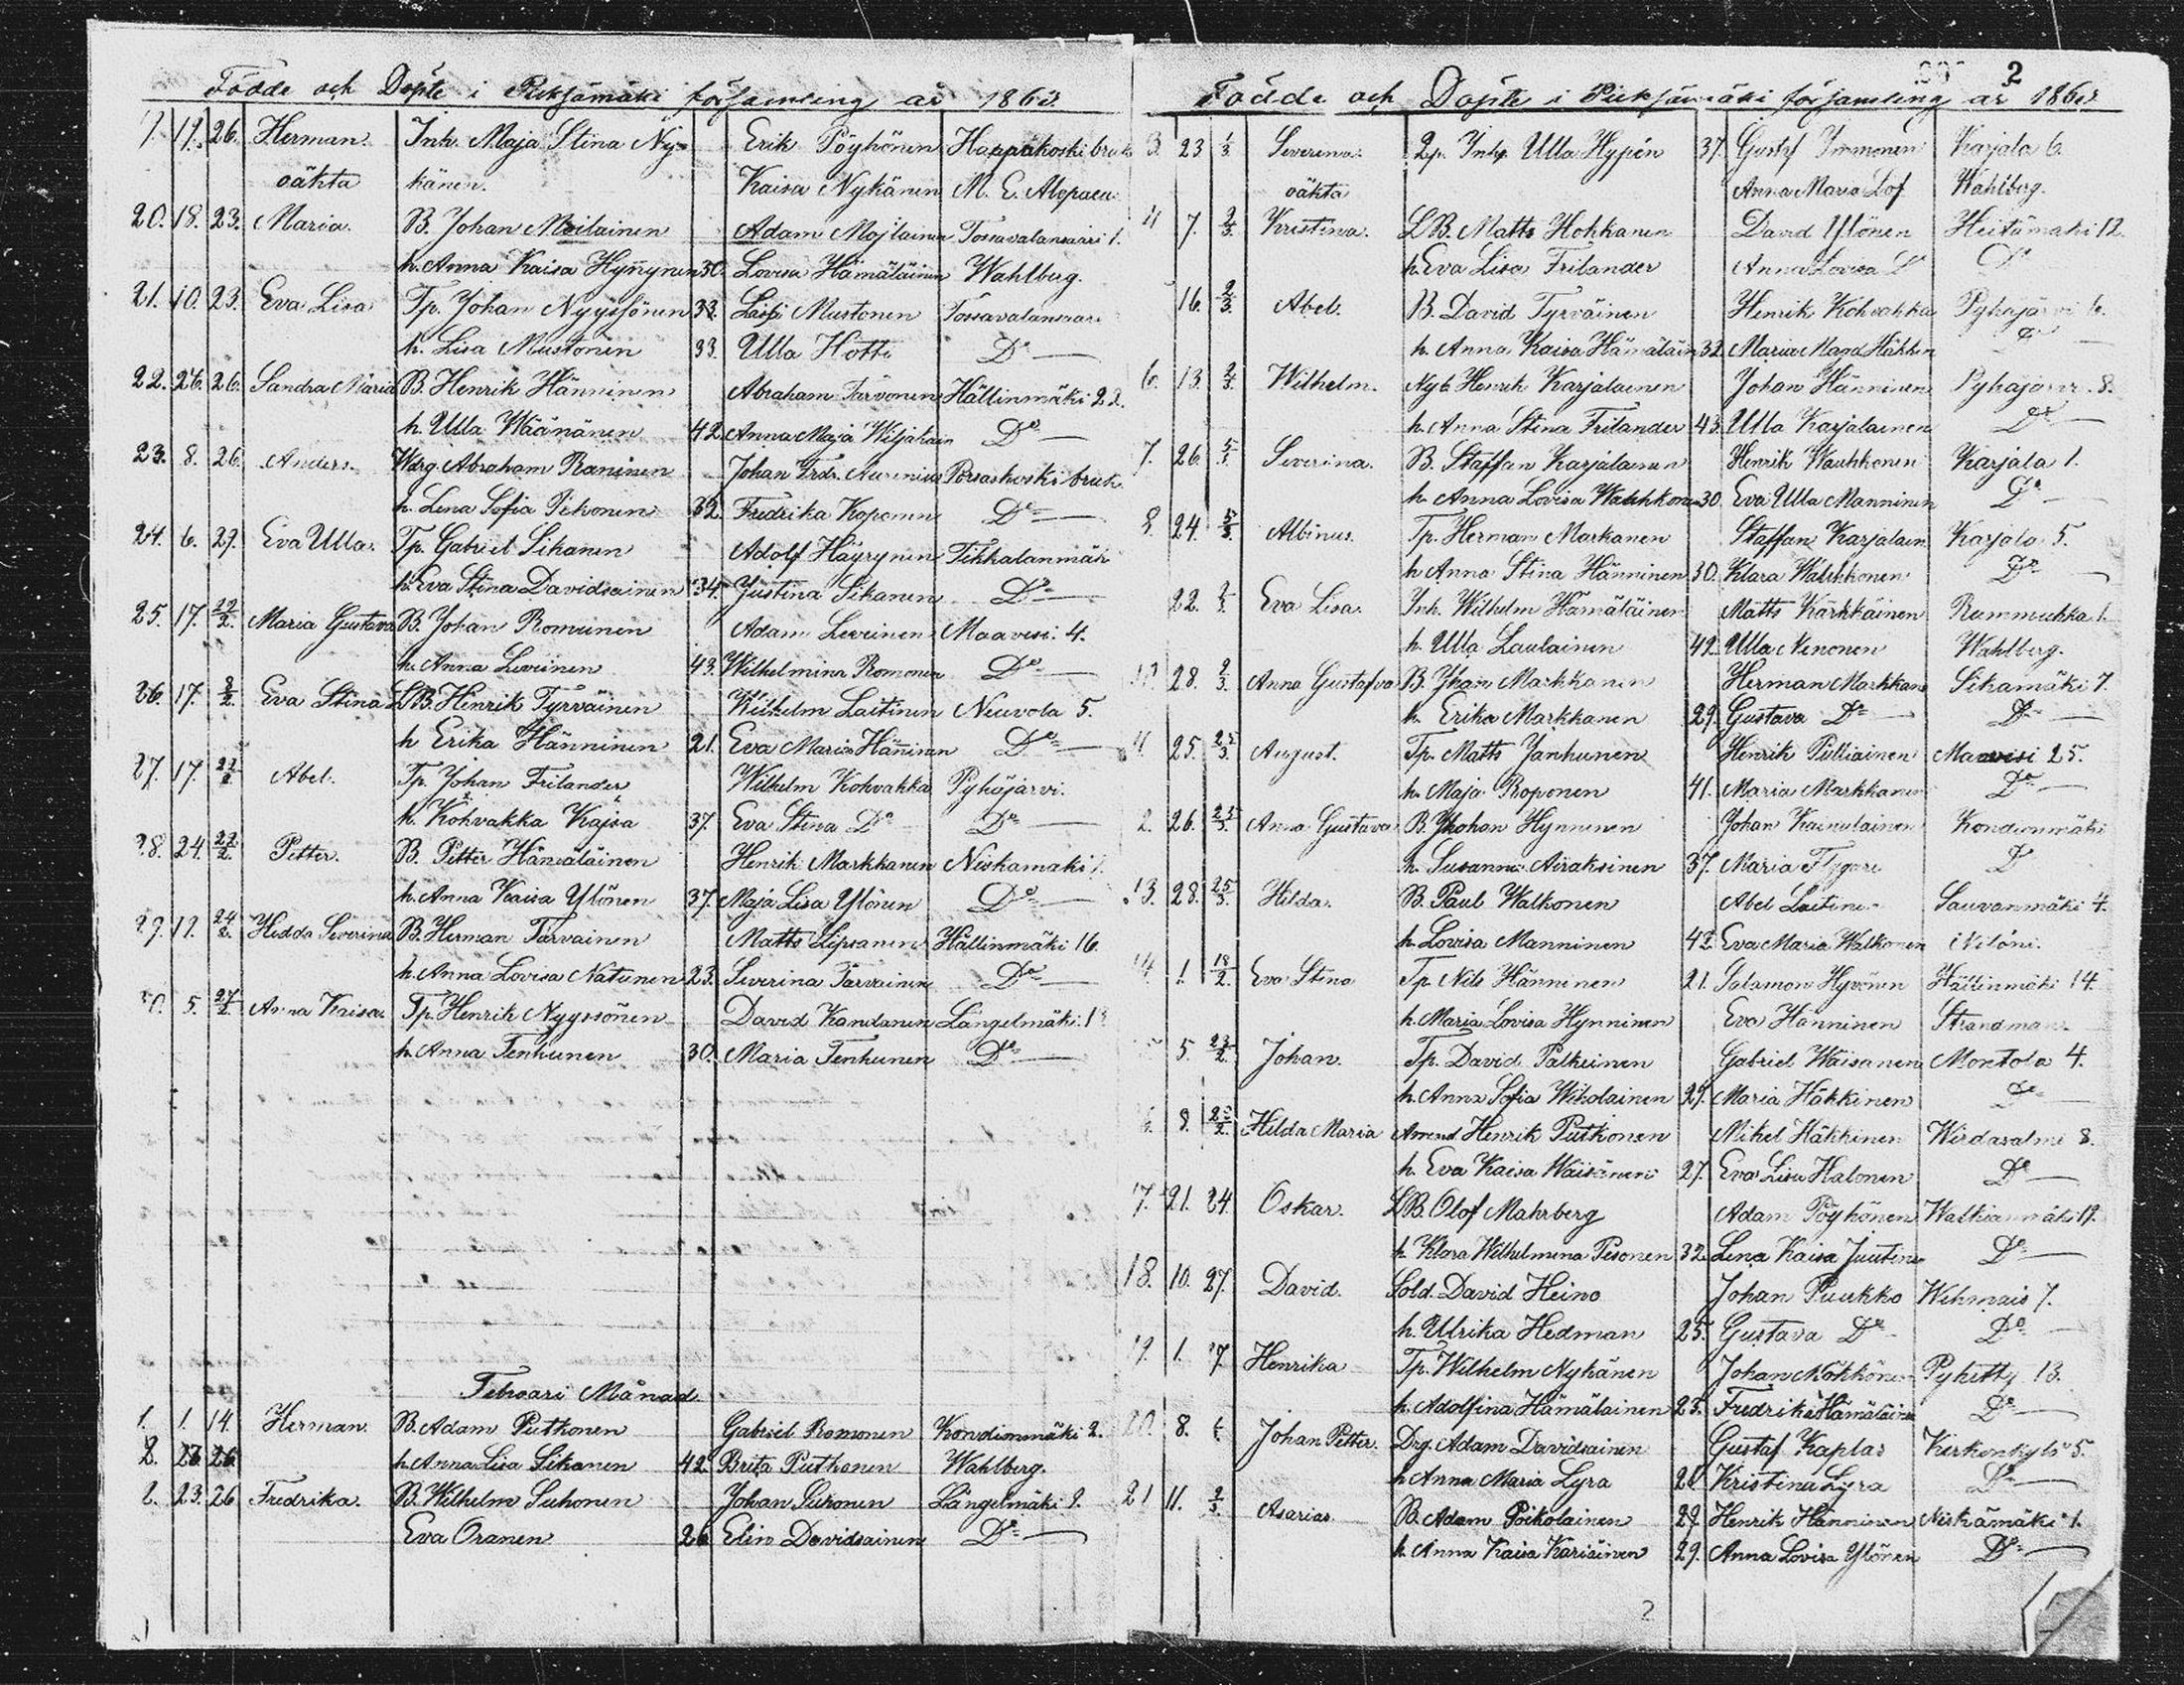 Födde och Döpte i Pieksämäki församling år 186
7. 17. 26. Herman. Inh. Maja Stina Ny- Erik Pöyhönen Haapakoski bruk
oäkta känen. Kaisa Nykänen M. E. Alopaeu
20. 18. 23. Maria. B. Johan Moilainen Adam Mojlainen Tossavalansaari 1.
h. Anna Kaisa Hynynen 30. Lovisa Hämäläinen Wahlberg.
21. 10. 23. Eva Lisa Tp. Johan Nyyssönen 33. Lassi Mustonen Tossavalansaar
h. Lisa Mustonen 33. Ulla Hotti Do
22. 26. 26. Sandra Maria B. Henrik Hänninen Abraham Tarvonen Hällinmäki 22.
h. Ulla Wäänänen 42. Anna Maja Wiljahain Do
23. 8. 26. Anders. Wdrg. Abraham Raninen Johan Frdr. Porsaskoski bruk
h. Lena Sofia Pekonen 32. Fredrika Koponen Do
24. 6. 29. Eva Ulla. Tp. Gabriel Sikanen Adolf Häyrynen Tikkalanmäk
h. Eva Stina Davidsainen 34. Justina Sikanen Do
25. 17. Maria Gustava B. Johan Romunen Adam Leveinen Maavesi. 4.
h. Anna Leveinen 43. Wilhelmina Romonen Do
26. 17. 2/2. Eva Stina LB. Henrik Tyrväinen Wilhelm Laitinen Neuvola 5.
h Erika Hänninen 21. Eva Maria Hänninen Do
27. 17. 22/2 Abel. Tp. Johan Frilander Wilhelm Kohvakka Pyhäjärvi.
h. Kohvakka Kajsa 37. Eva Stina Do Do
28. 24. 22/2. Petter. B. Petter Hämäläinen Henrik Markkanen Niskamäki 1.
h. Anna Kaisa Ylönen 37. Maja Lisa Ylönen Do
29. 19. 24/2. Hedda Severina B. Herman Tarvainen Matts Lipsanen Hällinmäki 16.
h. Anna Lovisa Natunen 23. Severina Tarvainen Do
5. 27/2 Anna Kaisa Tp. Henrik Nyyssönen David Kandanen Längelmäki. 1
h. Anna Tenhunen 30. Maria Tenhunen Do
Februari Månad
1. 1. 14. Herman. B. Adam Putkonen Gabriel Romonen Kondionmäki 2.
h. Anna Lisa Sikanen 42. Brita Putkonen Wahlberg.
2. 23. 26 Fredrika. B. Wilhelm Suhonen Johan Suhonen Längelmäki 9.
Eva Oranen 26 Elin Davidsainen Do
2
Födde och Döpte i Pieksämäki församling år 186
3. 23 1/3 Severina. Inhy. Ulla Hypén 37. Gustf Immonen Karjala 6.
oäkta Anna Maria Lof Wahlberg.
4 7. 2/3. Kristina. LB. Matts Hokkanen David Ylönen Heitämäki 12.
h. Eva Lisa Frilander Anna Lovisa Do Do
16. 2/3. Abel. B. David Tyrväinen Henrik Kohvakka Pyhäjärvi 6.
h. Anna Kaisa Hämäläin 32. Maria Magd. Häkkin Do
6. 13. 2/3. Wilhelm. Nyb. Henrik Karjalainen Johan Hänninen Pyhäjärv. 8.
h. Anna Stina Frilander 43. Ulla Karjalainen Do
7. 26. 5/3. Severina. B. Staffan Karjalainen Henrik Wauhkonen Karjala 1.
h. Anna Lovisa Wauhkonen 30. Eva Ulla Manninen Do
8. 24. 5/3. Albinus. Tp. Herman Markanen Staffan Karjalain Karjala 5.
h Anna Stina Hänninen 30. Klara Wauhkonen Do
22. Eva Lisa. Inh. Wilhelm Hämäläinen Matts Kärkkäinen Rummukka 1.
h. Ulla Laulainen 42. Ulla Nenonen Wahlberg.
28. 9/3. Anna Gustafva B. Johan Markkanen Herman Markkane Sikamäki 7.
h. Erika Markkanen 29. Gustava Do Do
25. August. Tp. Matts Janhunen Henrik Pulliainen Maavesi 25.
h. Maja Roponen 41. Maria Markkanen Do
2. 26. 25/3. Anna Gustava B. Johan Hynninen Johan Kainulainen Kondionmäki
h. Susanna Airaksinen 37. Maria Flygare D
13. 28. 25/3. Hilda. B. Paul Walkonen Abel Laitine Sauvanmäki 4.
h. Lovisa Manninen 42. Eva Maria Walkonen
1. 18/2. Eva Stina Tp. Nils Hänninen 21. Salamon Hyvönen Hällinmäki 14.
h. Maria Lovisa Hynninen Eva Hänninen Strandman
5. 23/2. Johan. Tp. David Palkeinen Gabriel Wäisänen Montola 4.
h. Anna Sofia Wikolainen 29. Maria Häkkinen Do
8. Hilda Maria Henrik Putkonen Mikel Häkkinen Wirdasalmi 8.
h. Eva Kaisa Wäisänen 27. Eva Lisa Halonen Do
7. 21. 24. Oskar. LB. Olof Mahrberg Adam Pöyhönen Walkiamäki 19.
h. Klara Wilhelmina Pesonen 32. Lena Kaisa Juutine Do
18. 10. 27. David. Sold. David Heino Johan Puukko Wehmais 7.
h. Ulrika Hedman 25. Gustava Do Do
9. 1. 7 Henrika Tp. Wilhelm Nykänen Johan Kokkönen Pyhitty 13.
h. Adolfina Hämäläinen 23. Fredrika Hämäläine Do
20. 8. Johan Petter. Drg. Adam Davidsainen Gustaf Kaplas Kirkonkylä 5.
h Anna Maria Lyra 26 Kristina Lyra Do
21 11. 2/3. Asarias B. Adam Poikolainen 29. Henrik Hänninen Niskämäki 1.
h. Anna Kaisa Kariainen 29. Anna Lovisa Ylönen Do
2